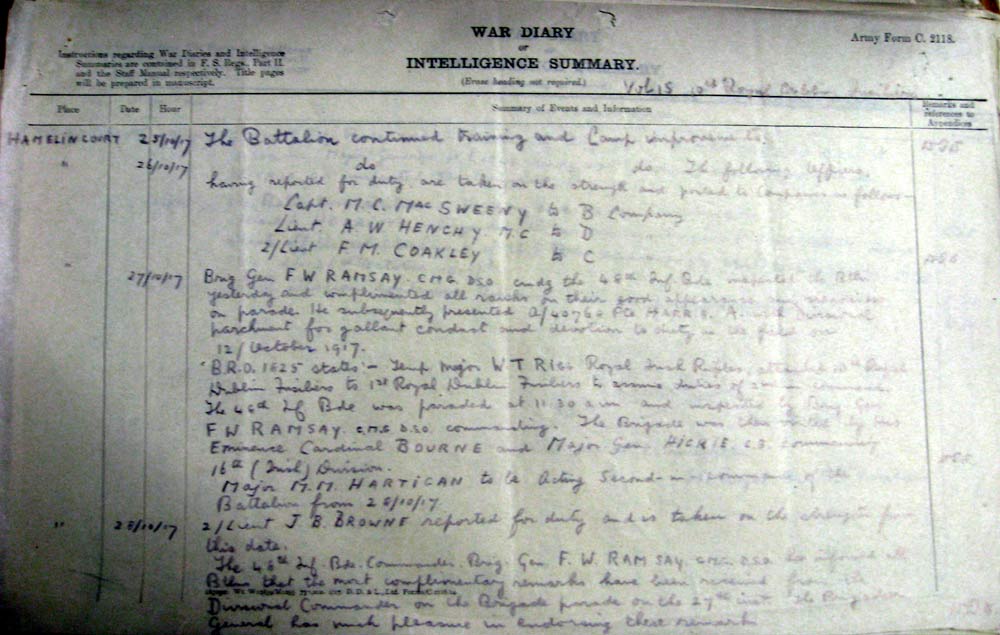 WAR DIARY
or
INTELLIGENCE SUMMARY.
(Erase heading not required.)
Army Form C. 2118.
Instructions regarding War Diaries and Intelligence
Summaries are contained in F. S. Regs., Part II.
and the Staff Manual respectively. Title pages
will be prepared in manuscript.
Vol 15 10th Royal Dublin Fusiliers
Place Date Hour Summary of Events and Information Remarks and
references to
Appendices
HAMELINCOURT 25/10/17 The Battalion continued training and Camp improvements.
" 26/10/17 do do. The following Officers,
having reported for duty are taken on the strength and posted to Companies as follows
Capt. M. C. MAC SWEENY to B Company
Lieut. A W HENCHY M.C to D
2/Lieut F M. COAKLEY to C
" 27/10/17 Brig Gen F W RAMSAY. CMG. DSO cmdg the 48th Inf Bde inspected the Bttn
yesterday and complimented all ranks on their good appearance and
on parade. He subsequently presented Pte HARRIS. A. with Divisional
parchment for gallant conduct and devotion to duty in the field on
12/October 1917.
B.R.O. 1625 states :- Temp Major W T RIGG Royal Irish Rifles, attached 10th Royal
Dublin Fusiliers to 1st Royal Dublin Fusiliers to assume duties of 2nd in command.
The 48th Inf Bde was paraded at 11.30 a.m and inspected by Brig Gen
F W RAMSAY. C.M.G. D.S.O. commanding. The Brigade was then visited by His
Eminence Cardinal BOURNE and Major Gen HICKIE. C.B. commanding
16th (Irish) Division.
Major M. M. HARTIGAN to be Acting Second-in-command of the
Battalion from 28/10/17
" 28/10/17 2/Lieut J. B. BROWNE reported for duty and is taken on the strength from
this date.
The 48th Inf. Bde. Commander. Brig. Gen F. W. RAMSAY, CMG. DSO. has informed all
Bttns that the most complimentary remarks have been received from the
D. D. & L., Ltd.
Divisional Commander on the Brigade parade on the 27th inst. The Brigadier
General has much pleasure in endorsing these remarks